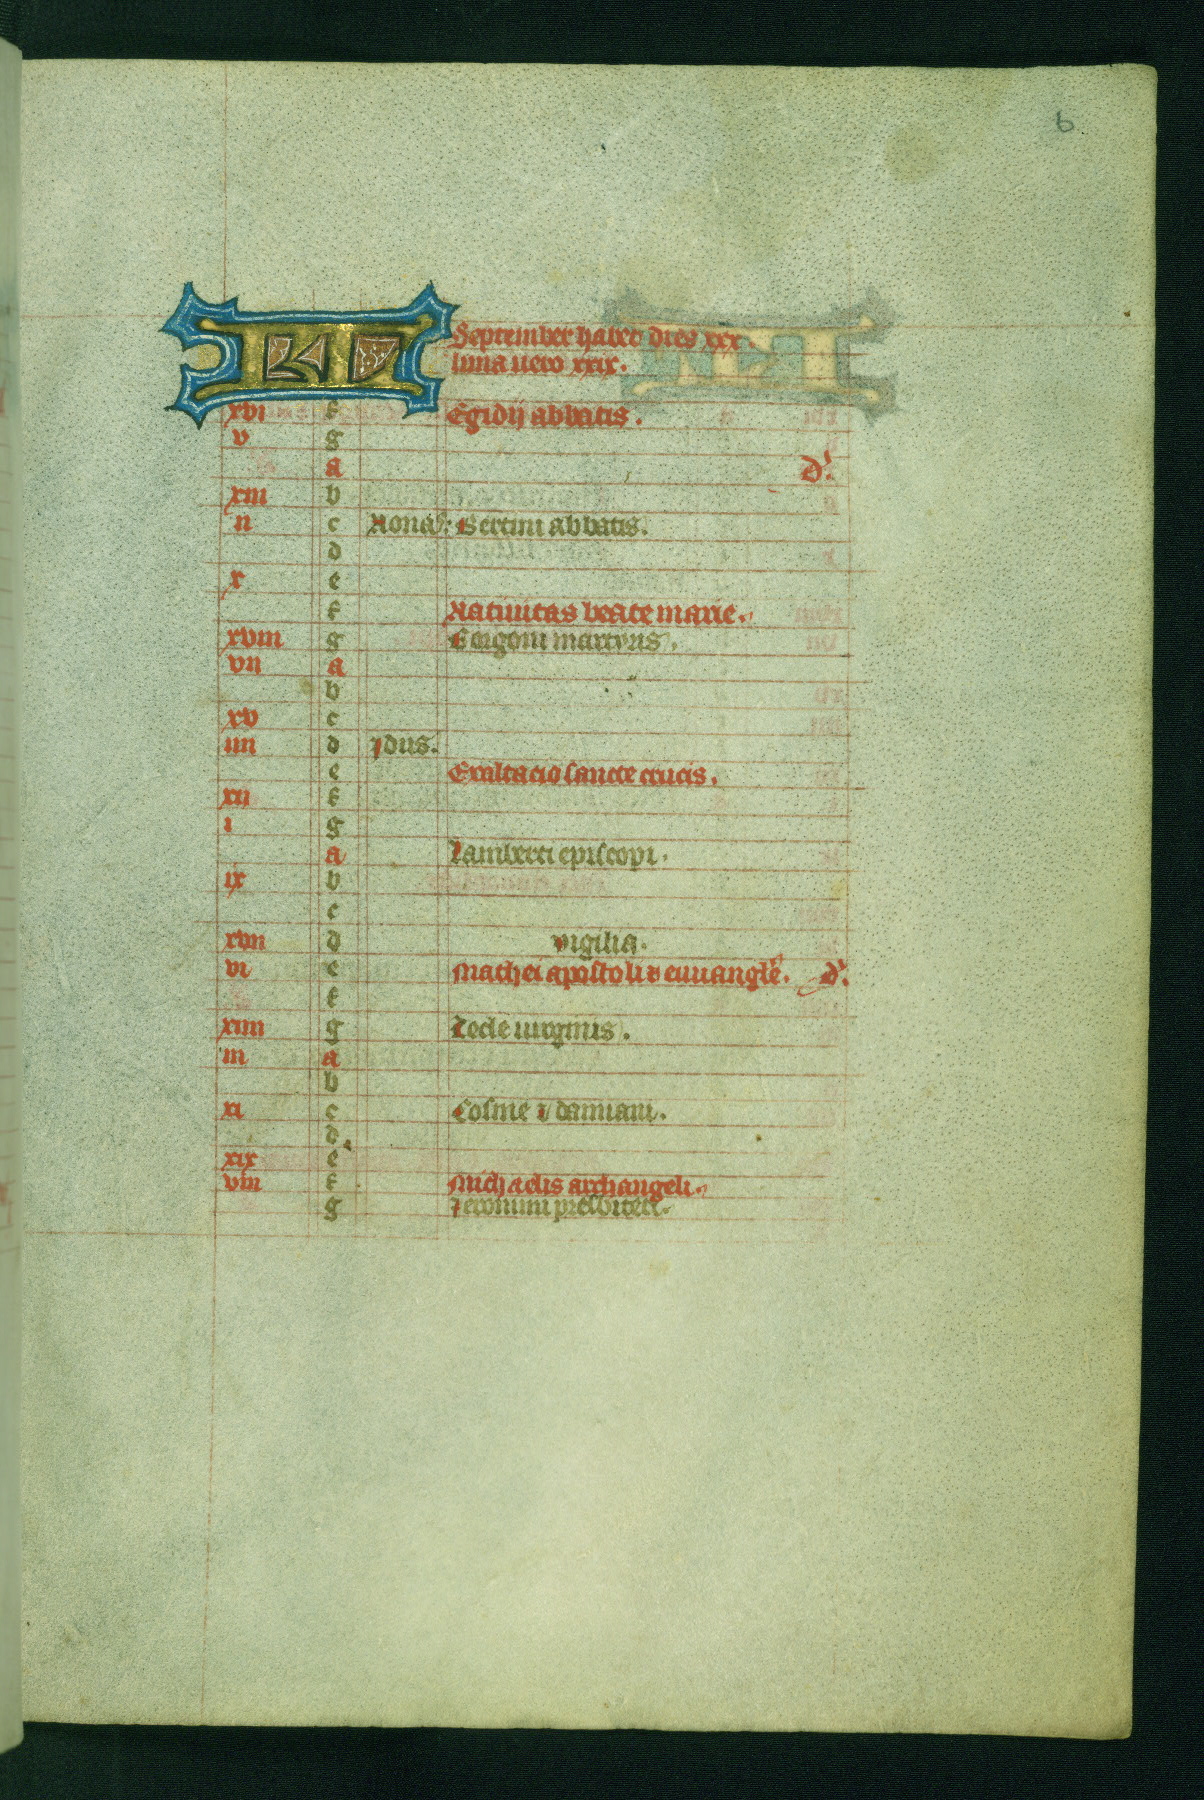 6
KL September habet dies xxx
luna uero xxix.
xvi f Egidij abbatis.
v g
a d'.
xiii b
ii c Nonas. Bertini abbatis.
d
x e
f Natiuitas beate marie.
xviii g Gorgonii martyris.
vii a
b
xv c
iiii d Idus.
e Exaltacio sancte crucis.
xii f
i g
a Lamberti episcopi.
ix b
c
xvii d vigilia.
vi e Mathei apostoli & euuangle. d'.
f
xiiii g Tecle uirginis.
iii a
b
xi c Cosme & damiani.
d
xix e
viii f Michaelis archangeli.
g Ieronimi presbiteri.